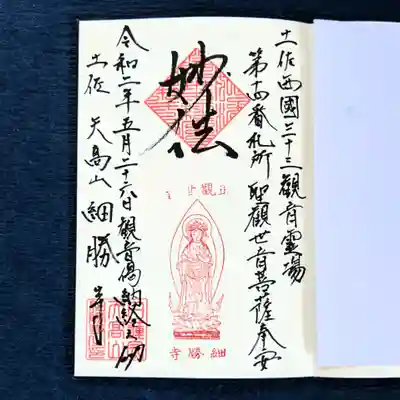 土佐西國三十三觀音霊場
第十番札所 聖觀世音菩薩奉安
妙法
細勝寺
令和二年五月二十六日觀音偈納経之功
土佐 天高山 細勝